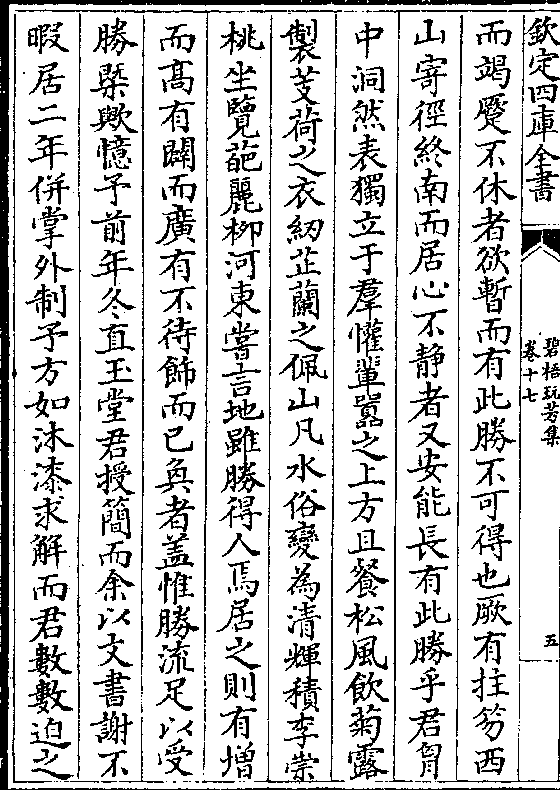 欽定四庫全書
碧梧玩芳集
卷十七
五
而竭蹷不休者欲暫而有此勝不可得也厥有拄笏西
山寄徑終南而居心不靜者又安能長有此勝乎君胷
中洞然表獨立于羣懽軰嚣之上方且餐松風飲菊露
製芰荷之衣紉芷蘭之佩山凡水俗變為清輝積李崇
桃坐覽葩麗栁河東嘗言地雖勝得人焉居之則有增
而髙有闢而廣有不待飾而已奐者盖惟勝流足以受
勝槩歟憶予前年冬直玉堂君授簡而余以文書謝不
暇居二年併掌外制予方如沐漆求解而君數數迫之